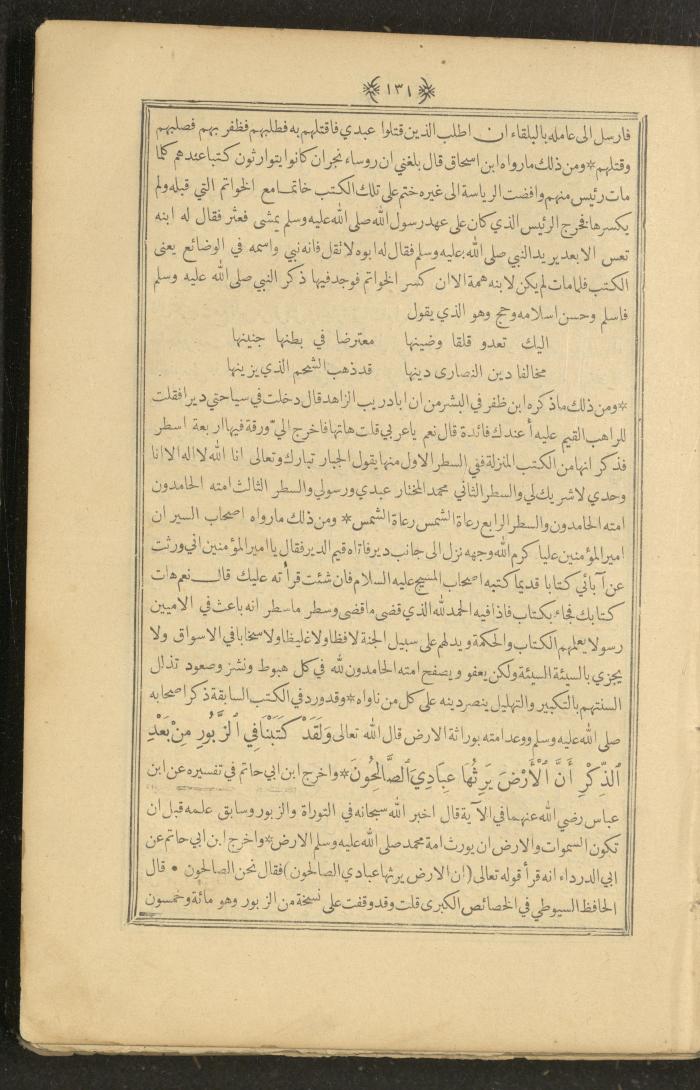 ﴿١٣١﴾
فارسل الى عامله بالبلقاء ان اطلب الذين قتلوا عبدي فاقتلهم به فطلبهم فظفر بهم فصلبهم
وقتلهم * ومن ذلك مارواه ابن اسحاق قال بلغني ان روساء نجران كانوا يتوارثون كتبا عندهم كلما
مات رئيس منهم وافضت الرياسة الى غيره ختم على تلك الكتب خاتما مع الخواتم التي قبله ولم
يكسرها فخرج الرئيس الذي كان على عهد رسول الله صلى الله عليه وسلم يمشى فعثر فقال له ابنه
تعس الابعد يريد النبي صلى الله عليه وسلم فقال له ابوه لا تقل فانه نبي واسمه في الوضائع يعنى
الكتب فلما مات لم يكن لابنه همة الا ان كسر الخواتم فوجد فيها ذكر النبي صلى الله عليه وسلم
فاسلم وحسن اسلامه وحج وهو الذي يقول
اليك تعدو قلقا وضينها معترضا في بطنها جنينها
مخالفا دين النصارى دينها قد ذهب الشحم الذي يزينها
* ومن ذلك ماذكره ابن ظفر في البشر من ان ابا دريب الزاهد قال دخلت في سياحتي ديرا فقلت
للراهب القيم عليه أ عندك فائدة قال نعم ياعربي قلت هاتها فاخرج اليّ ورقة فيها اربعة اسطر
فذكر انها من الكتب المنزلة ففي السطر الاول منها يقول الجبار تبارك وتعالى انا الله لا اله الا انا
وحدي لا شريك لي والسطر الثاني محمد المختار عبدي ورسولي والسطر الثالث امته الحامدون
امته الحامدون والسطر الرابع رعاة الشمس رعاة الشمس * ومن ذلك مارواه اصحاب السير ان
امير المؤمنين عليا كرم الله وجهه نزل الى جانب دير فاتاه قيم الدير فقال يا امير المؤمنين اني ورثت
عن آبائي كتابا قديما كتبه اصحاب المسيح عليه السلام فان شئت قرأته عليك قال نعم هات
كتابك فجاء بكتاب فاذا فيه الحمد لله الذي قضى ما قضى وسطر ما سطر انه باعث في الاميين
رسولا يعلمهم الكتاب والحكمة ويدلهم على سبيل الجنة لا فظا ولا غليظا ولا سخابا في الاسواق ولا
يجزي بالسيئة السيئة ولكن يعفو ويصفح امته الحامدون لله في كل هبوط ونشز وصعود تذلل
السنتهم بالتكبير والتهليل ينصر دينه على كل من ناواه * وقد ورد في الكتب السابقة ذكر اصحابه
صلى الله عليه وسلم ووعد امته بوراثة الارض قال الله تعالى وَلَقَدْ كَتَبْنَا فِي ٱلزَّبُورِ مِنْ بَعْدِ
ٱلذِّكْرِ أَنَّ ٱلْأَرْضَ يَرِثُهَا عِبَادِيَ ٱلصَّالِحُونَ * واخرج ابن ابي حاتم في تفسيره عن ابن
عباس رضي الله عنهما في الآية قال اخبر الله سبحانه في التوراة والزبور وسابق علمه قبل ان
تكون السموات والارض ان يورث امة محمد صلى الله عليه وسلم الارض * واخرج ابن ابي حاتم عن
ابي الدرداء انه قرأ قوله تعالى (ان الارض يرثها عبادي الصالحون) فقال نحن الصالحون • قال
الحافظ السيوطي في الخصائص الكبرى قلت وقد وقفت على نسخة من الزبور وهو مائة وخمسون